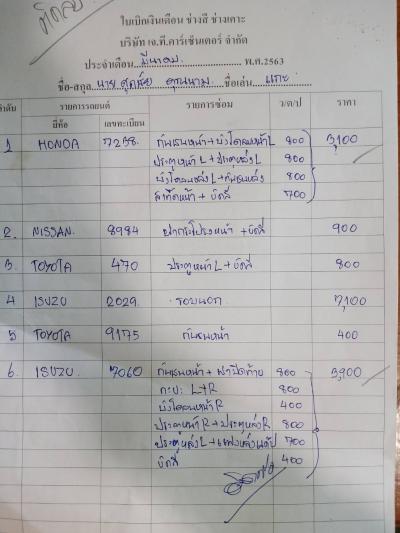 ใบเบิกเงินเดือน ช่างสี ช่างเคาะ
บริษัท เจ.ที.คาร์เซ็นเตอร์ จำกัด
ประจำเดือน มีนาคม พ.ศ.2563
ชื่อ-สกุล นาย ชื่อเล่น แกะ
ลำดับ รายการรถยนต์ รายการซ่อม ว/ด/ป ราคา
ยี่ห้อ เลขทะเบียน
1 HONDA 7238 กันชนหน้า+บังโคลนหน้า L 800 3,100
ประตูหน้า L + ประตูหลัง L 800
บังโคลนหลัง L + กันชนหลัง 800
หน้า + ขัดสี 700
2. NISSAN. 8984 ฝากระโปรงหน้า + ขัดสี 900
3 TOYOTA 470 ประตูหน้า L + ขัดสี 800
4 ISUZU 2029. รอบนอก 7,100
5 TOYOTA 9175 กันชนหน้า 400
6. ISUZU 7060 กันชนหน้า + ฝาปิดท้าย 800 3,900
กะบะ L+R 800
บังโคลนหน้า R 400
ประตูหน้า R + ประตูหลัง R 800
ประตูหลัง L + 700
ขัดสี 400